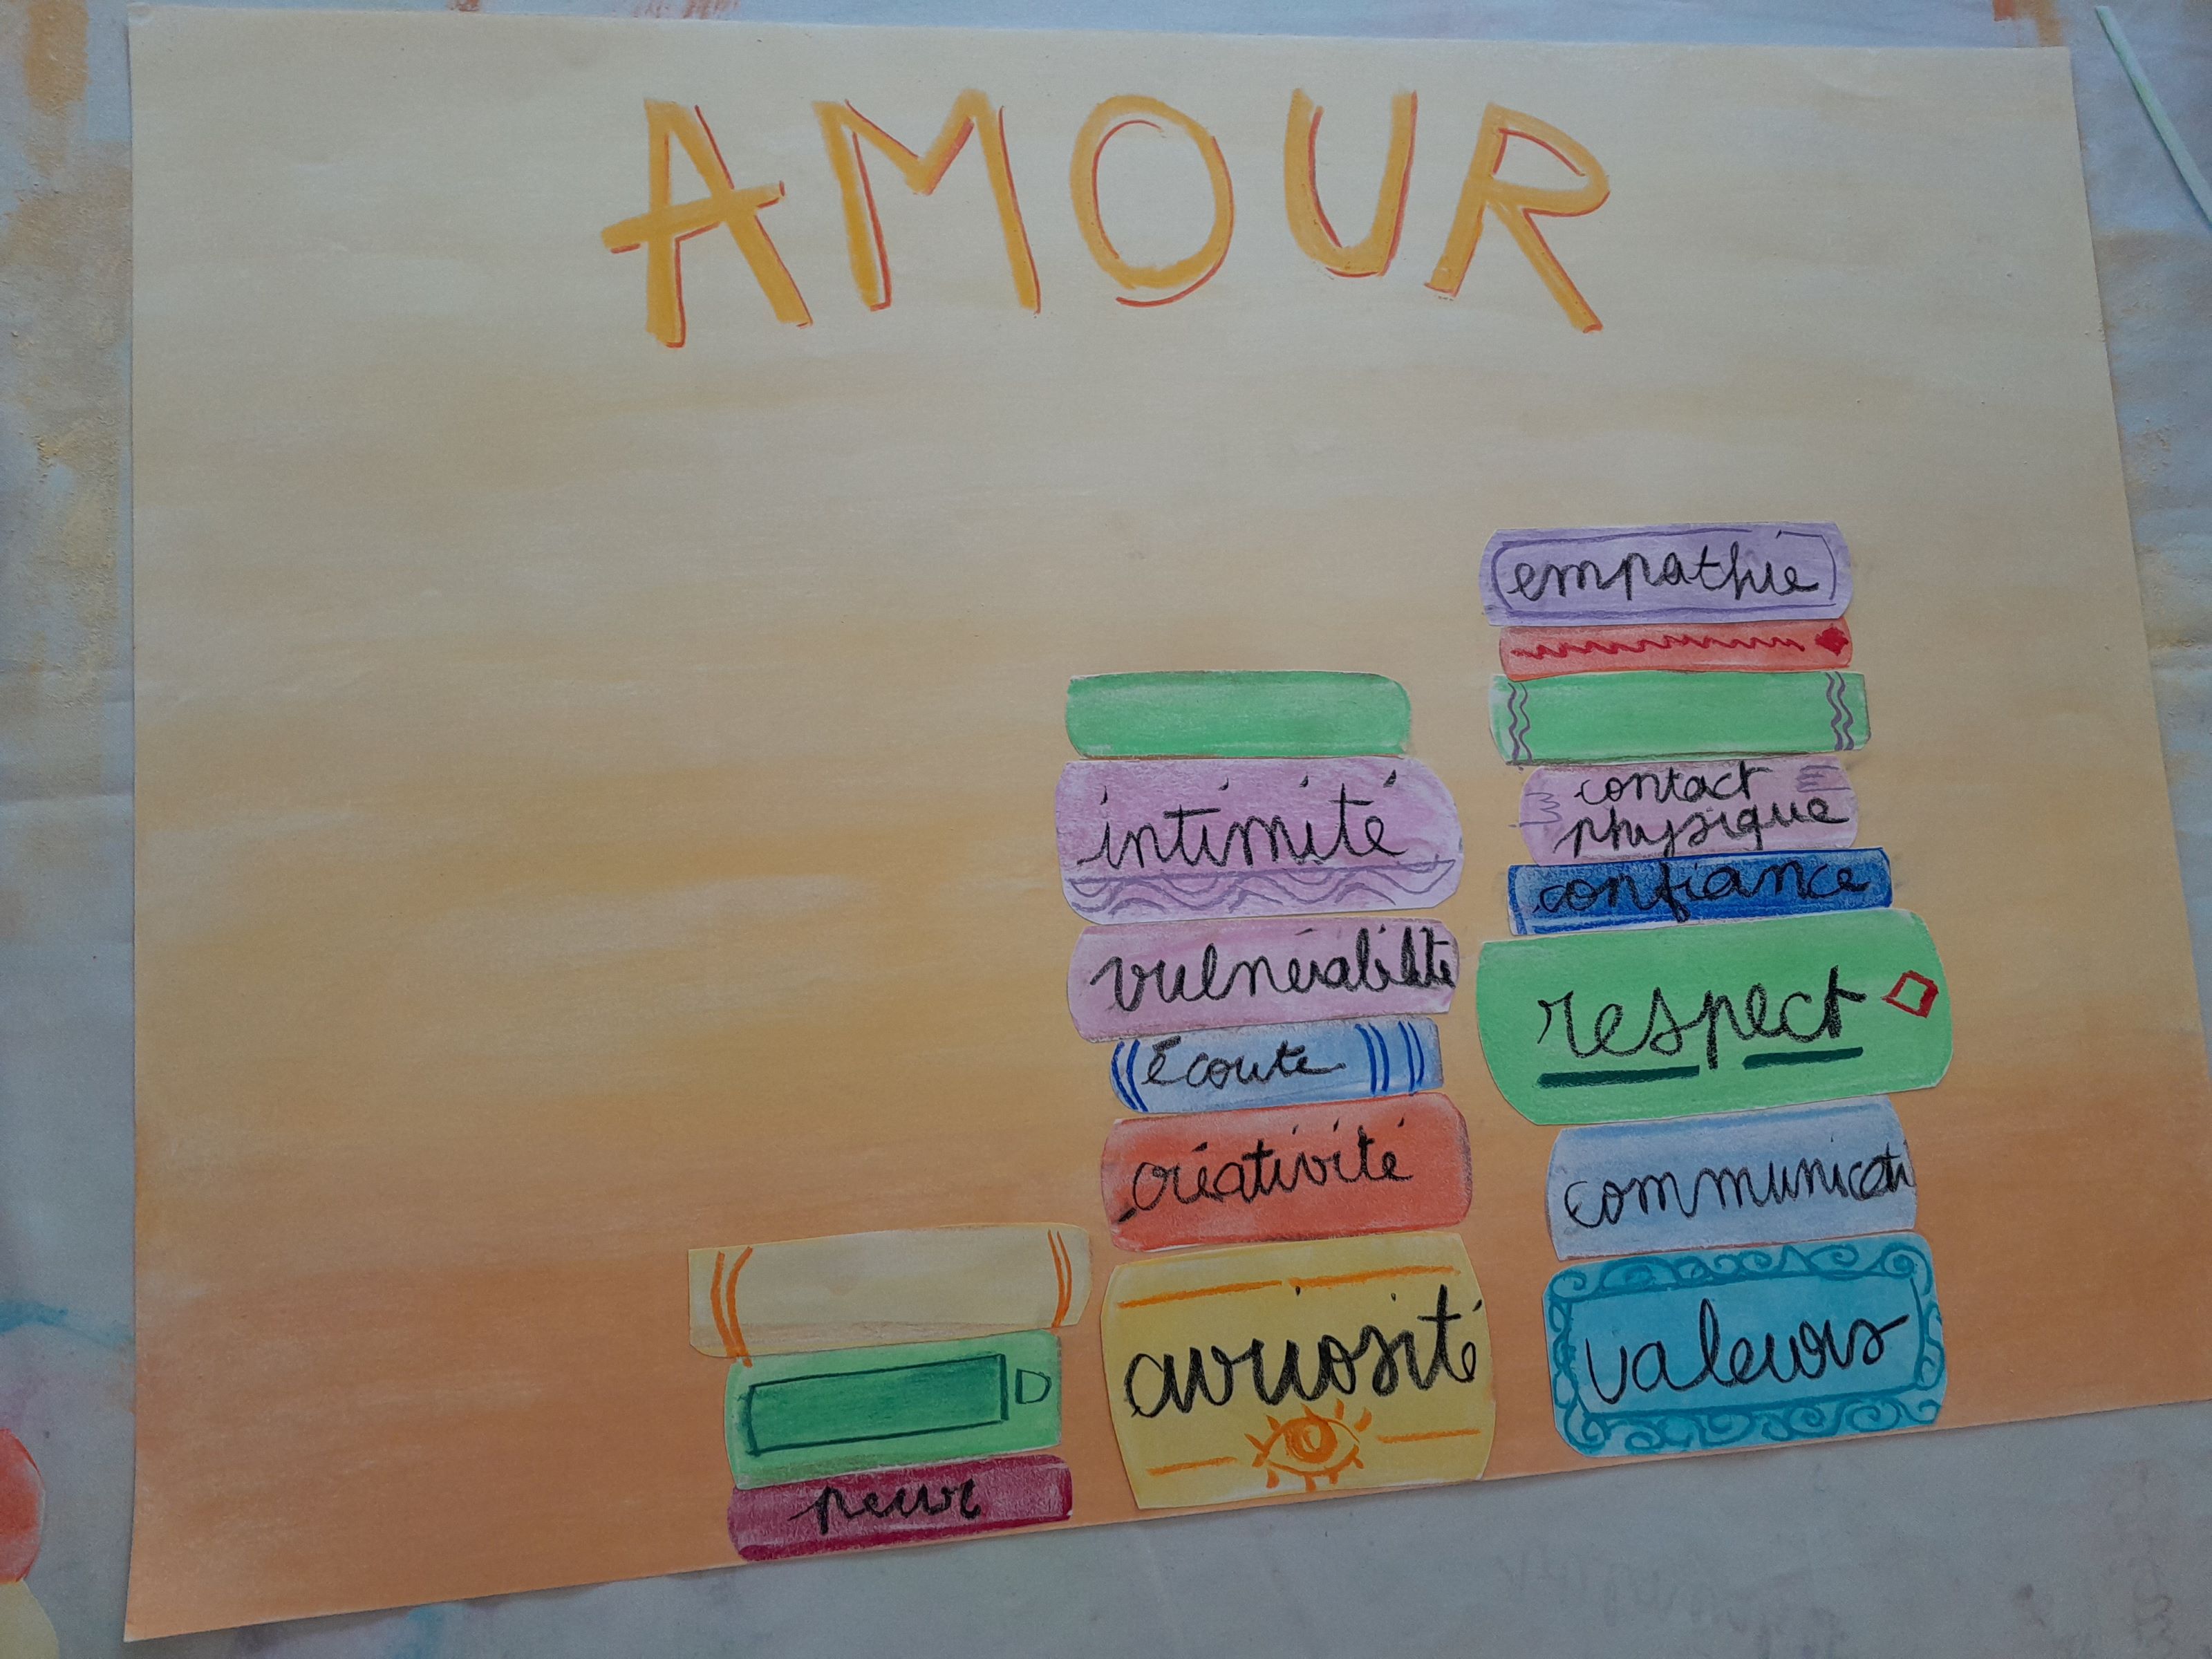 AMOUR
peur
intimité
vulnérabilité
écoute
créativité
curiosité
empathie
contact
physique
confiance
respect
communicati
valeurs